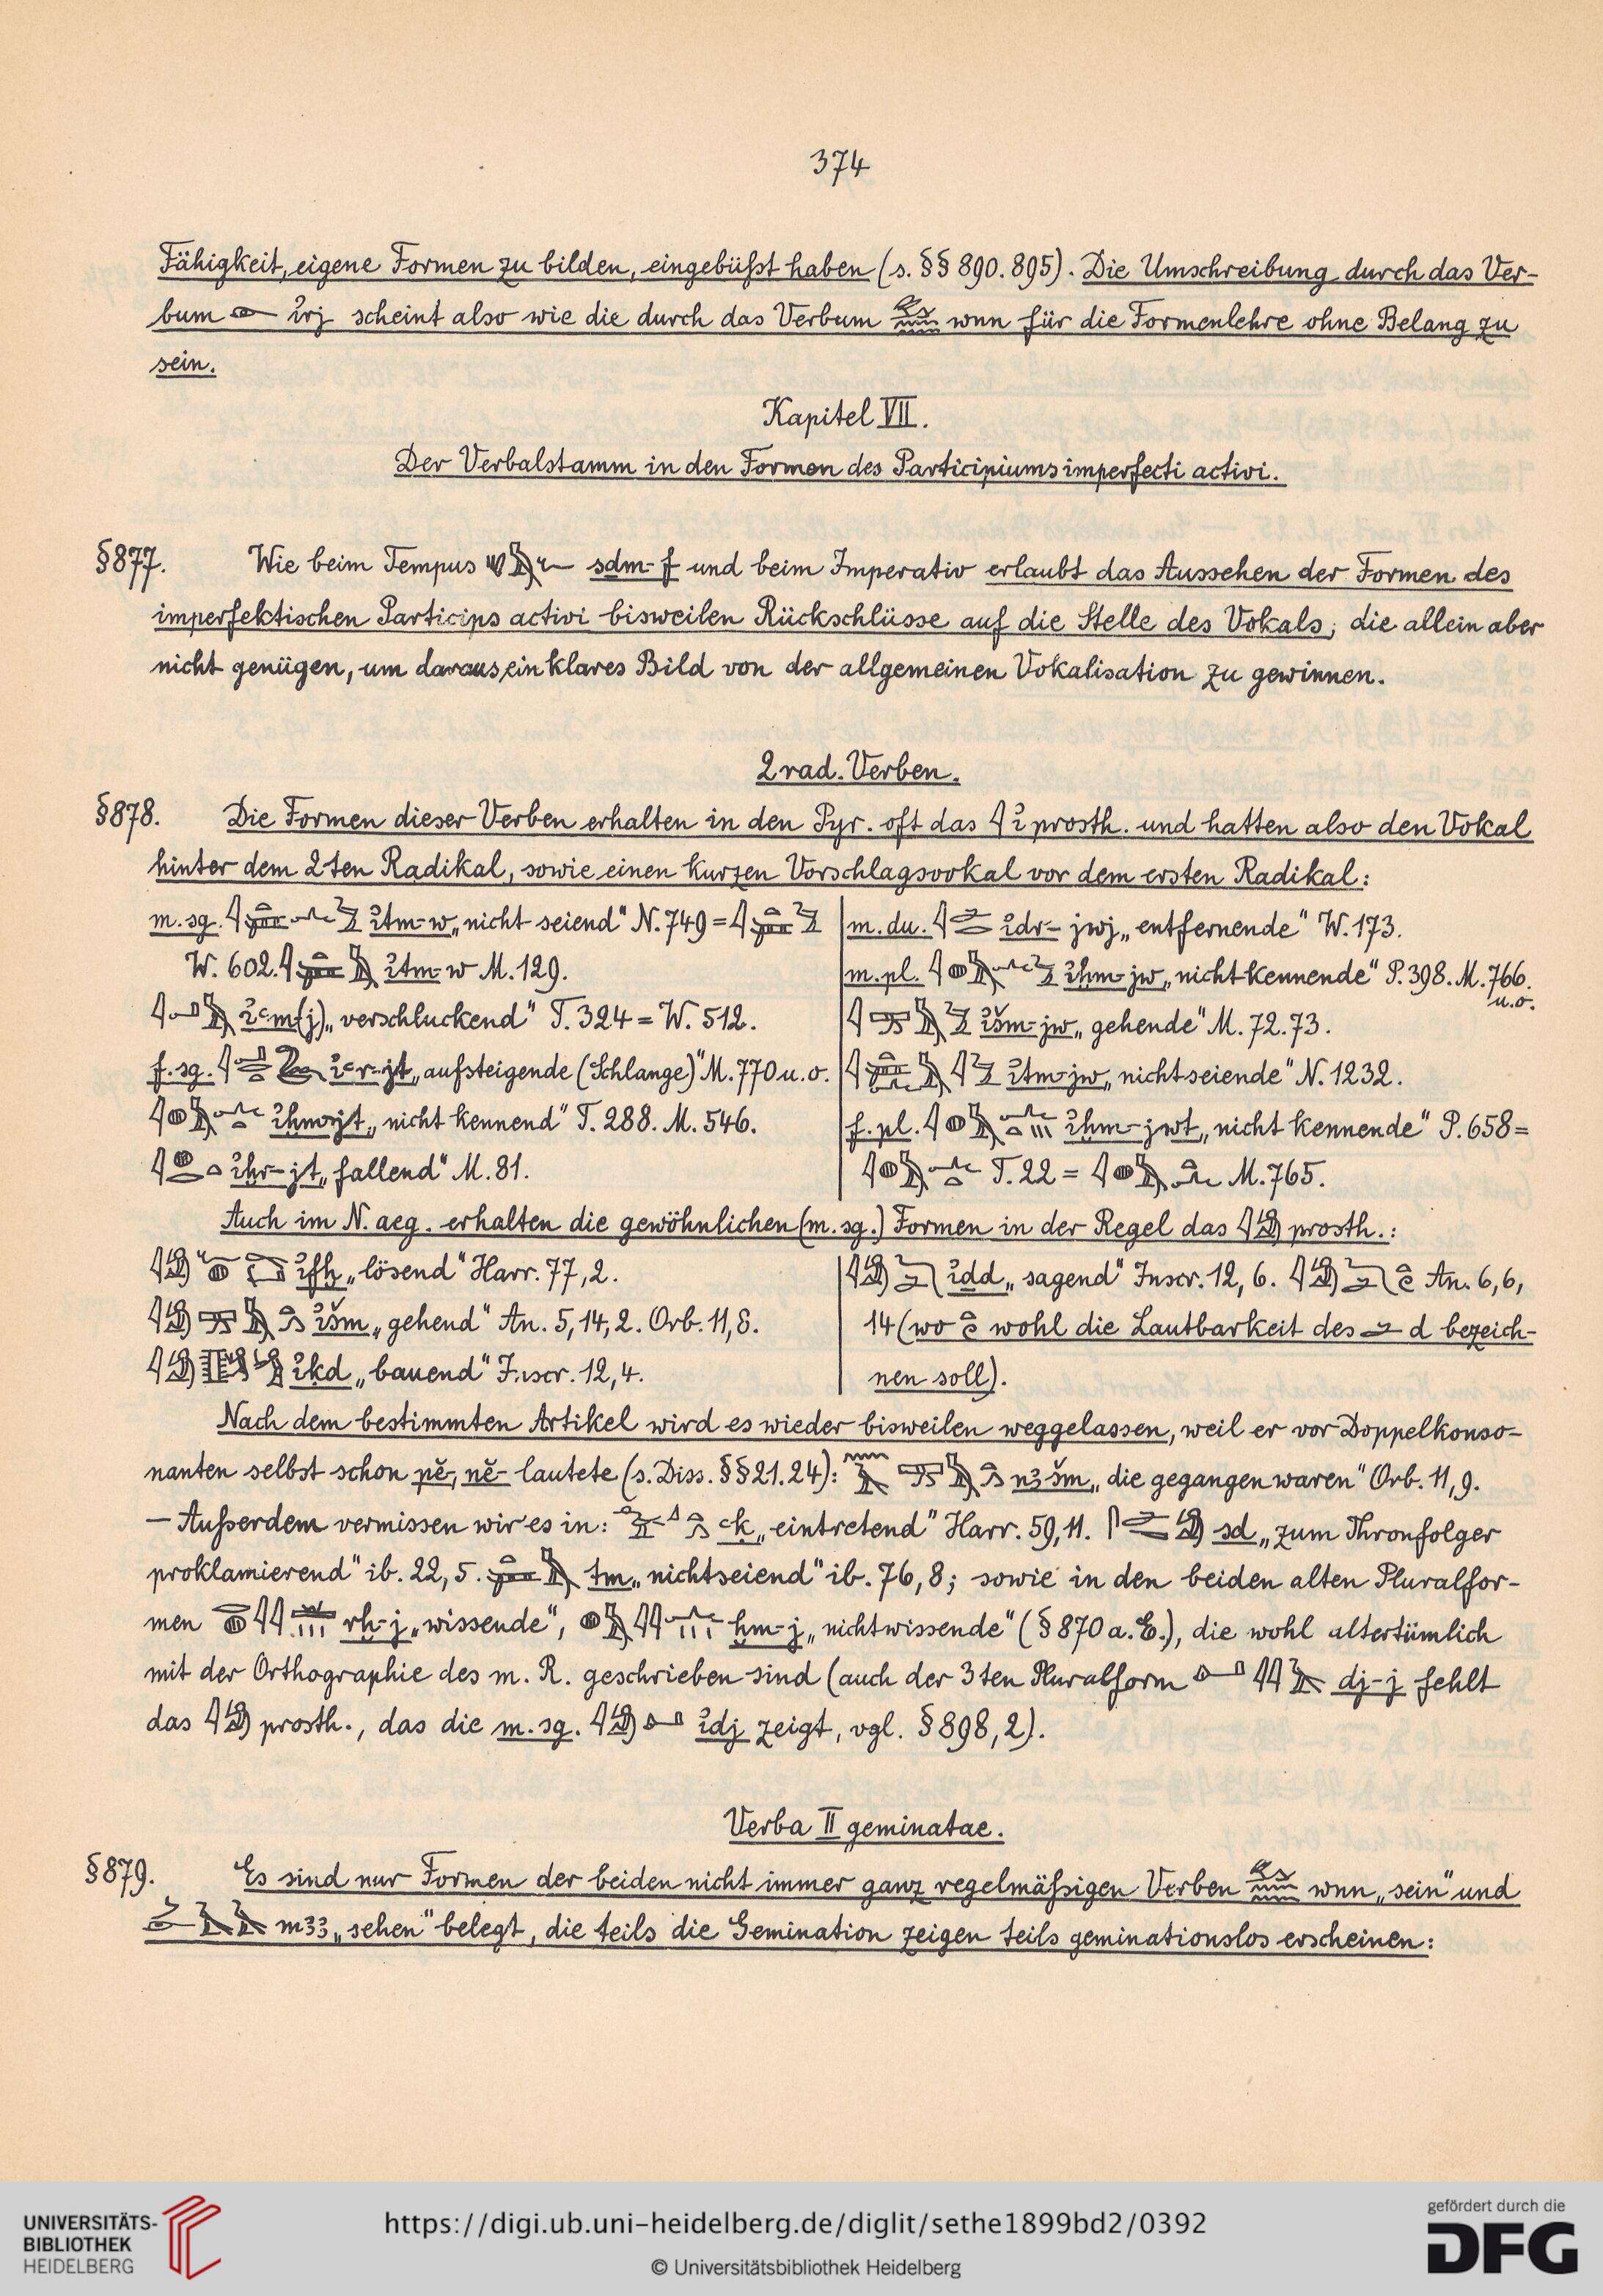 374
Fähigkeit, eigene Formen zu bilden, eingebüßt haben (s. §§ 890. 895). Die Umschreibung durch das Ver-
bum i҆rj scheint also wie die durch das Verbum wnn für die Formenlehre ohne Belang zu
sein.
Kapitel VII.
Der Verbalstamm in den Formen des Participiums imperfecti activi.
§877. Wie beim Tempus sḏm-f und beim Imperativ erlaubt das Aussehen der Formen des
imperfektischen Particips activi bisweilen Rückschlüsse auf die Stelle des Vokals, die allein aber
nicht genügen, um daraus ein klares Bild von der allgemeinen Vokalisation zu gewinnen.
2rad. Verben.
§878. Die Formen dieser Verben erhalten in den Pyr. oft das i҆ prosth. und hatten also den Vokal
hinter dem 2ten Radikal, sowie einen kurzen Vorschlagsvokal vor dem ersten Radikal:
m. sg. i҆tm-w „nicht seiend" N. 749 =
W. 602. i҆tm-w M. 129.
i҆ꜥm-(j) „verschluckend" T. 324 = W. 512.
f. sg. i҆ꜥr-jt „aufsteigende (Schlange)" M. 770 u. o.
i҆ḫm-jt „nicht kennend" T. 288. M. 546.
i҆ḫr-jt „fallend" M. 81.
m. du. i҆dr-jwj „entfernende" W. 173.
m. pl. i҆ḫm-jw „nicht kennende" P. 398. M. 766.
u. o.
i҆šm-jw „gehende" M. 72. 73.
i҆tm-jw „nicht seiende" N. 1232.
f. pl. i҆ḫm-jwt „nicht kennende" P. 658 =
T. 22 = M. 765.
Auch im N. aeg. erhalten die gewöhnlichen (m. sg.) Formen in der Regel das prosth.:
i҆fḫ „lösend" Harr. 77, 2.
i҆šm „gehend" An. 5, 14, 2. Orb. 11, 8.
i҆ḳd „bauend" Inscr. 12, 4.
i҆ḏd „sagend" Inscr. 12, 6. An. 6, 6,
14 (wo wohl die Lautbarkeit des d bezeich-
nen soll).
Nach dem bestimmten Artikel wird es wieder bisweilen weggelassen, weil er vor Doppelkonso-
nanten selbst schon pĕ-, nĕ- lautete (s. Diss. §§ 21. 24): nꜣ šm „die gegangen waren" Orb. 11, 9.
— Außerdem vermissen wir es in: ꜥḳ „eintretend" Harr. 59, 11. sd „zum Thronfolger
proklamierend" ib. 22, 5. tm „nicht seiend" ib. 76, 8; sowie in den beiden alten Pluralfor-
men rḫ-j „wissende", ḫm-j „nichtwissende" (§ 870 a. E.), die wohl altertümlich
mit der Orthographie des m. R. geschrieben sind (auch der 3ten Pluralform dj-j fehlt
das prosth., das die m. sg. i҆dj zeigt, vgl. § 898, 2).
Verba II geminatae.
§879. Es sind nur Formen der beiden nicht immer ganz regelmäßigen Verben wnn „sein" und
mꜣꜣ „sehen" belegt, die teils die Gemination zeigen teils geminationslos erscheinen:
UNIVERSITÄTS-
BIBLIOTHEK
HEIDELBERG
https://digi.ub.uni-heidelberg.de/diglit/sethe1899bd2/0392
© Universitätsbibliothek Heidelberg
gefördert durch die
DFG